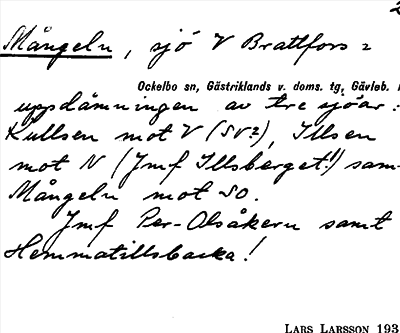 2
Mångeln, sjö V Brattfors =
Ockelbo sn, Gästriklands v. doms. tg, Gävleb. l
uppdämningen av tre sjöar:
Kullsen mot V (SV?), Illsen
mot N (Jmf Illsberget!) sam-
Mångeln mot SO.
Jmf Per-Olsåkern samt
Hemmatillsbacka!
LARS LARSSON 193